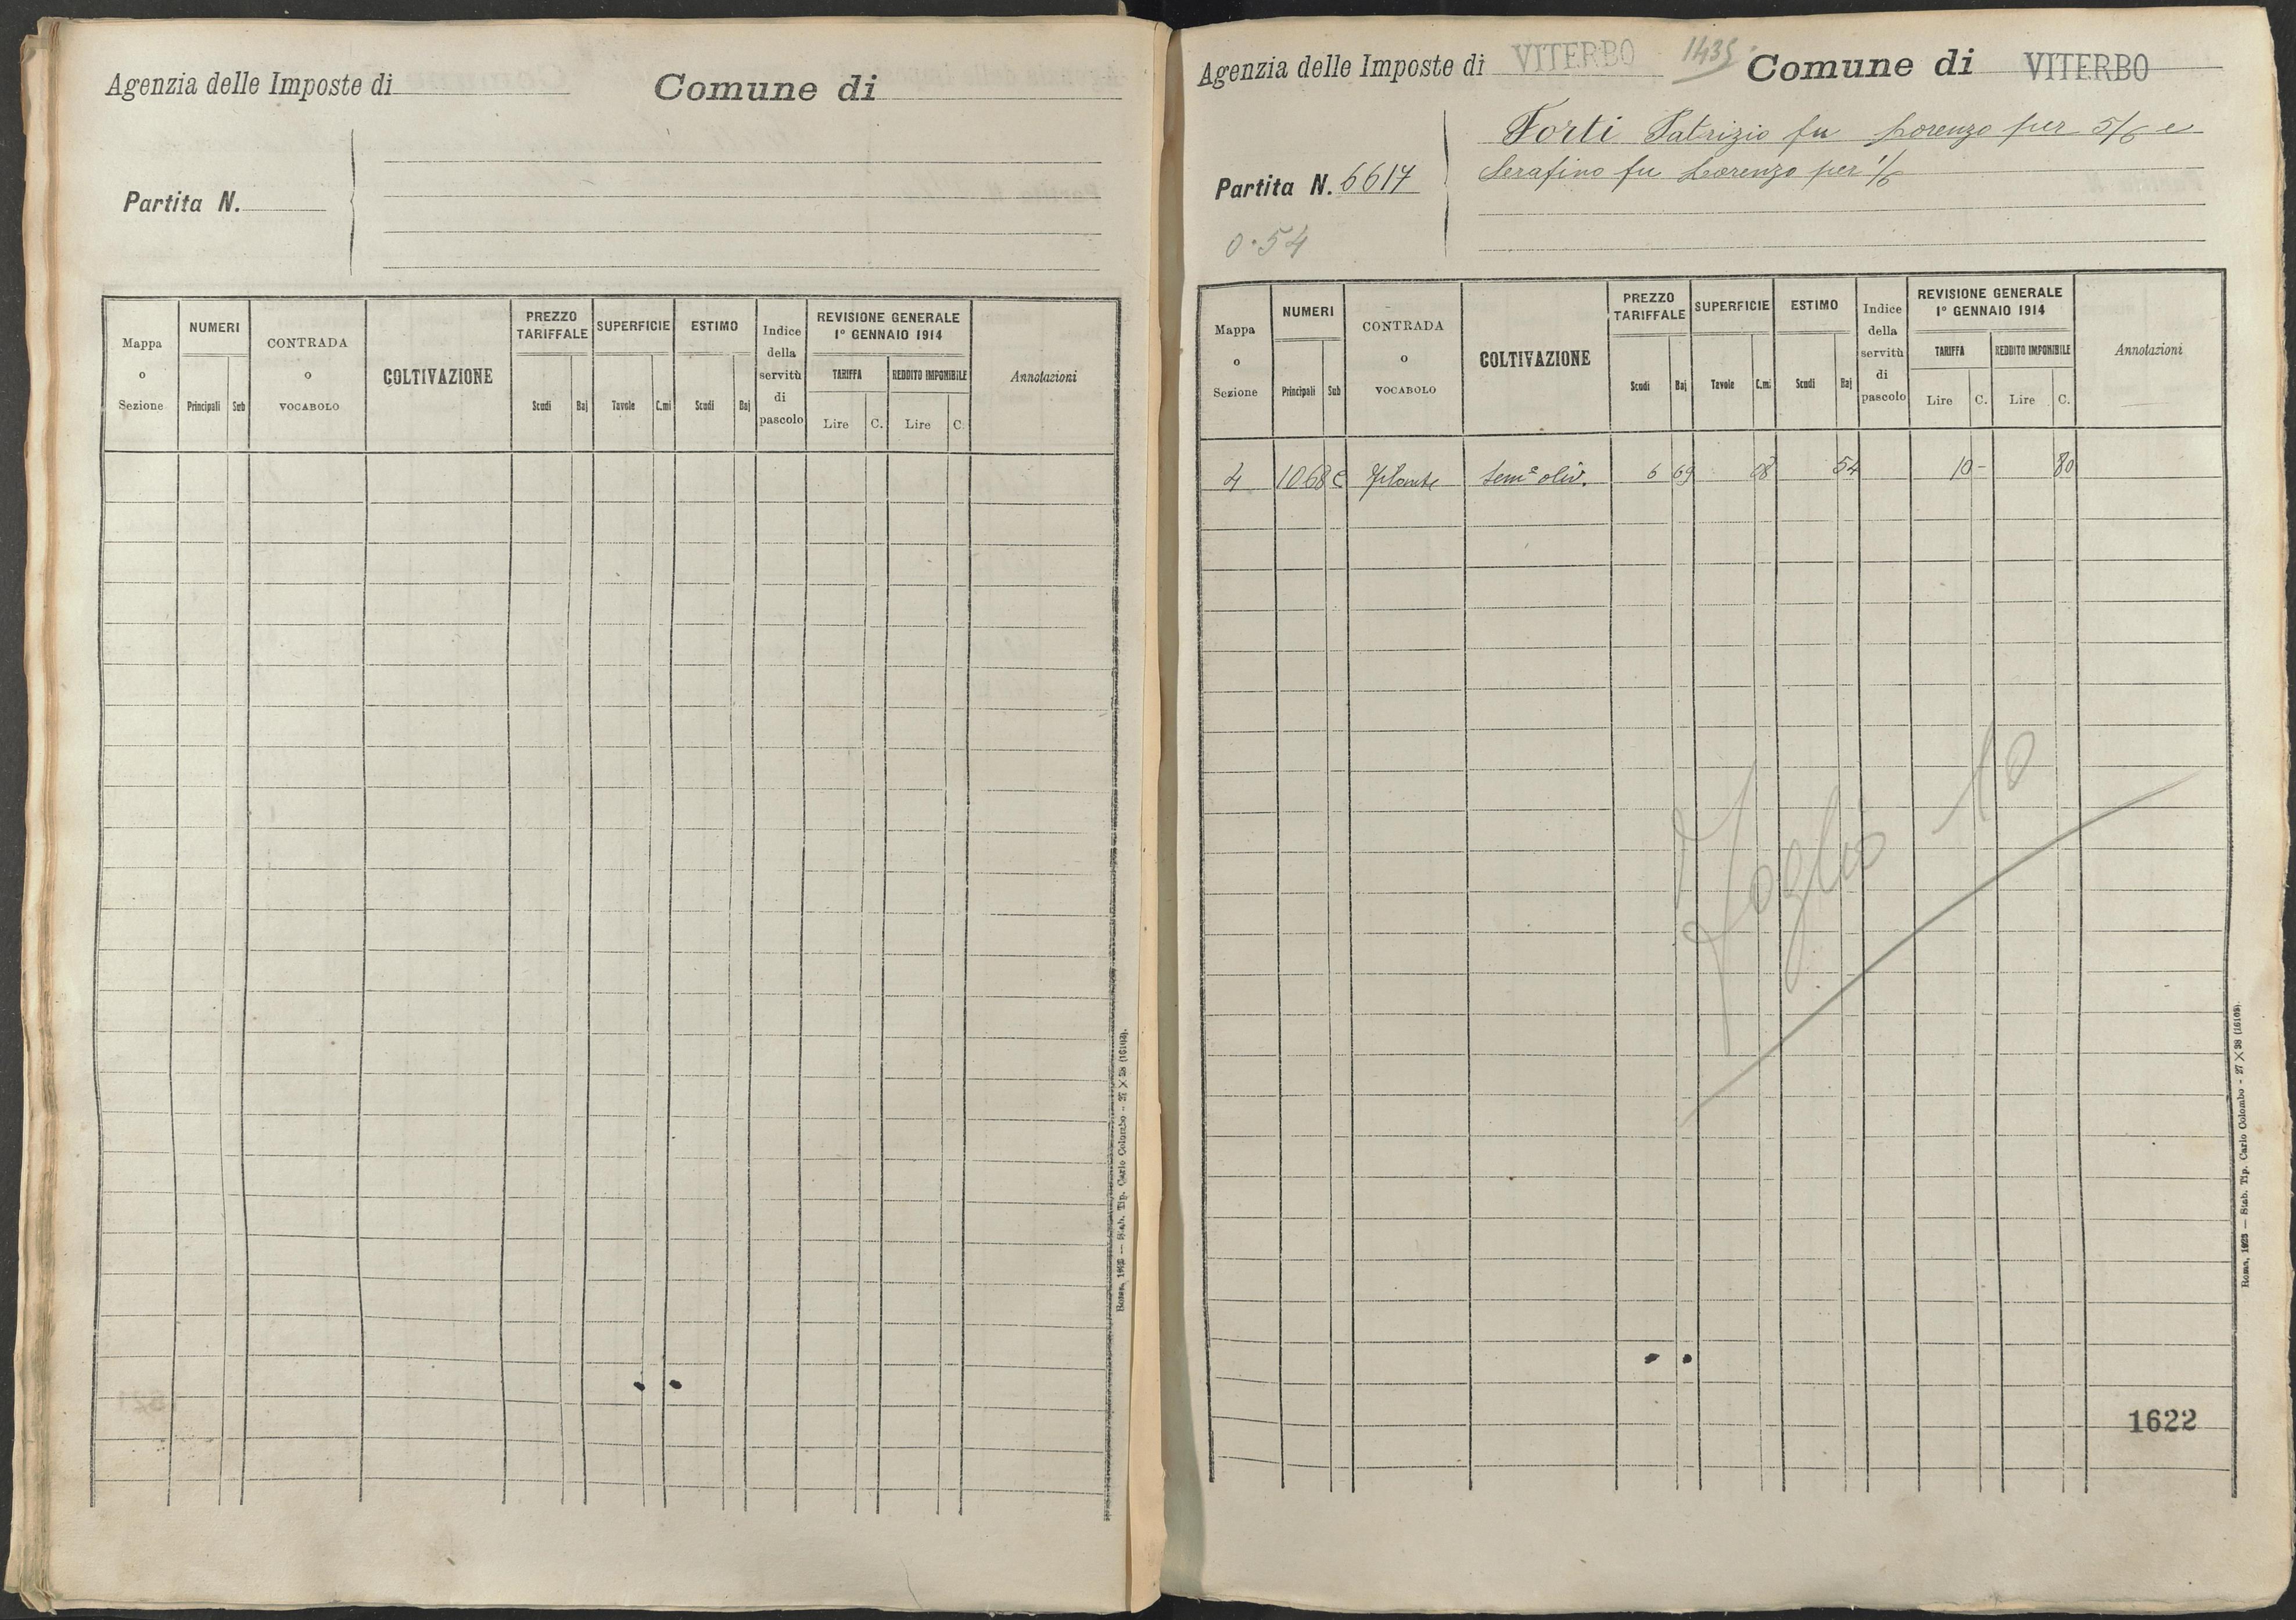 Agenzia delle Imposte di
Comune di
Partita N.
Mappa o Sezione
NUMERI
Principali Sub
CONTRADA o VOCABOLO
COLTIVAZIONE
PREZZO TARIFFALE
Scudi Baj
SUPERFICIE
Tavole C.mi
ESTIMO
Scudi Baj
Indice della servitù di pascolo
REVISIONE GENERALE
1º GENNAIO 1914
TARIFFA
Lire C.
REDDITO IMPONIBILE
Lire C.
Annotazioni
Stab. Tip. Carlo Colombo - 27 X 38 (16103).
Agenzia delle Imposte di VITERBO 1435 Comune di VITERBO
Forti Patrizio fu Lorenzo per 5/6 e
Serafino fu Lorenzo per 1/6
Partita N. 6617
0.54
Mappa o Sezione
NUMERI
Principali Sub
CONTRADA o VOCABOLO
COLTIVAZIONE
PREZZO TARIFFALE
Scudi Baj
SUPERFICIE
Tavole C.mi
ESTIMO
Scudi Baj
Indice della servitù di pascolo
REVISIONE GENERALE
1º GENNAIO 1914
TARIFFA
Lire C.
REDDITO IMPONIBILE
Lire C.
Annotazioni
4 1068 c Sem.º oliv. 6 69 08 54 10 - 80
Foglio 10
Roma, 1923 — Stab. Tip. Carlo Colombo - 27 X 38 (16103).
1622